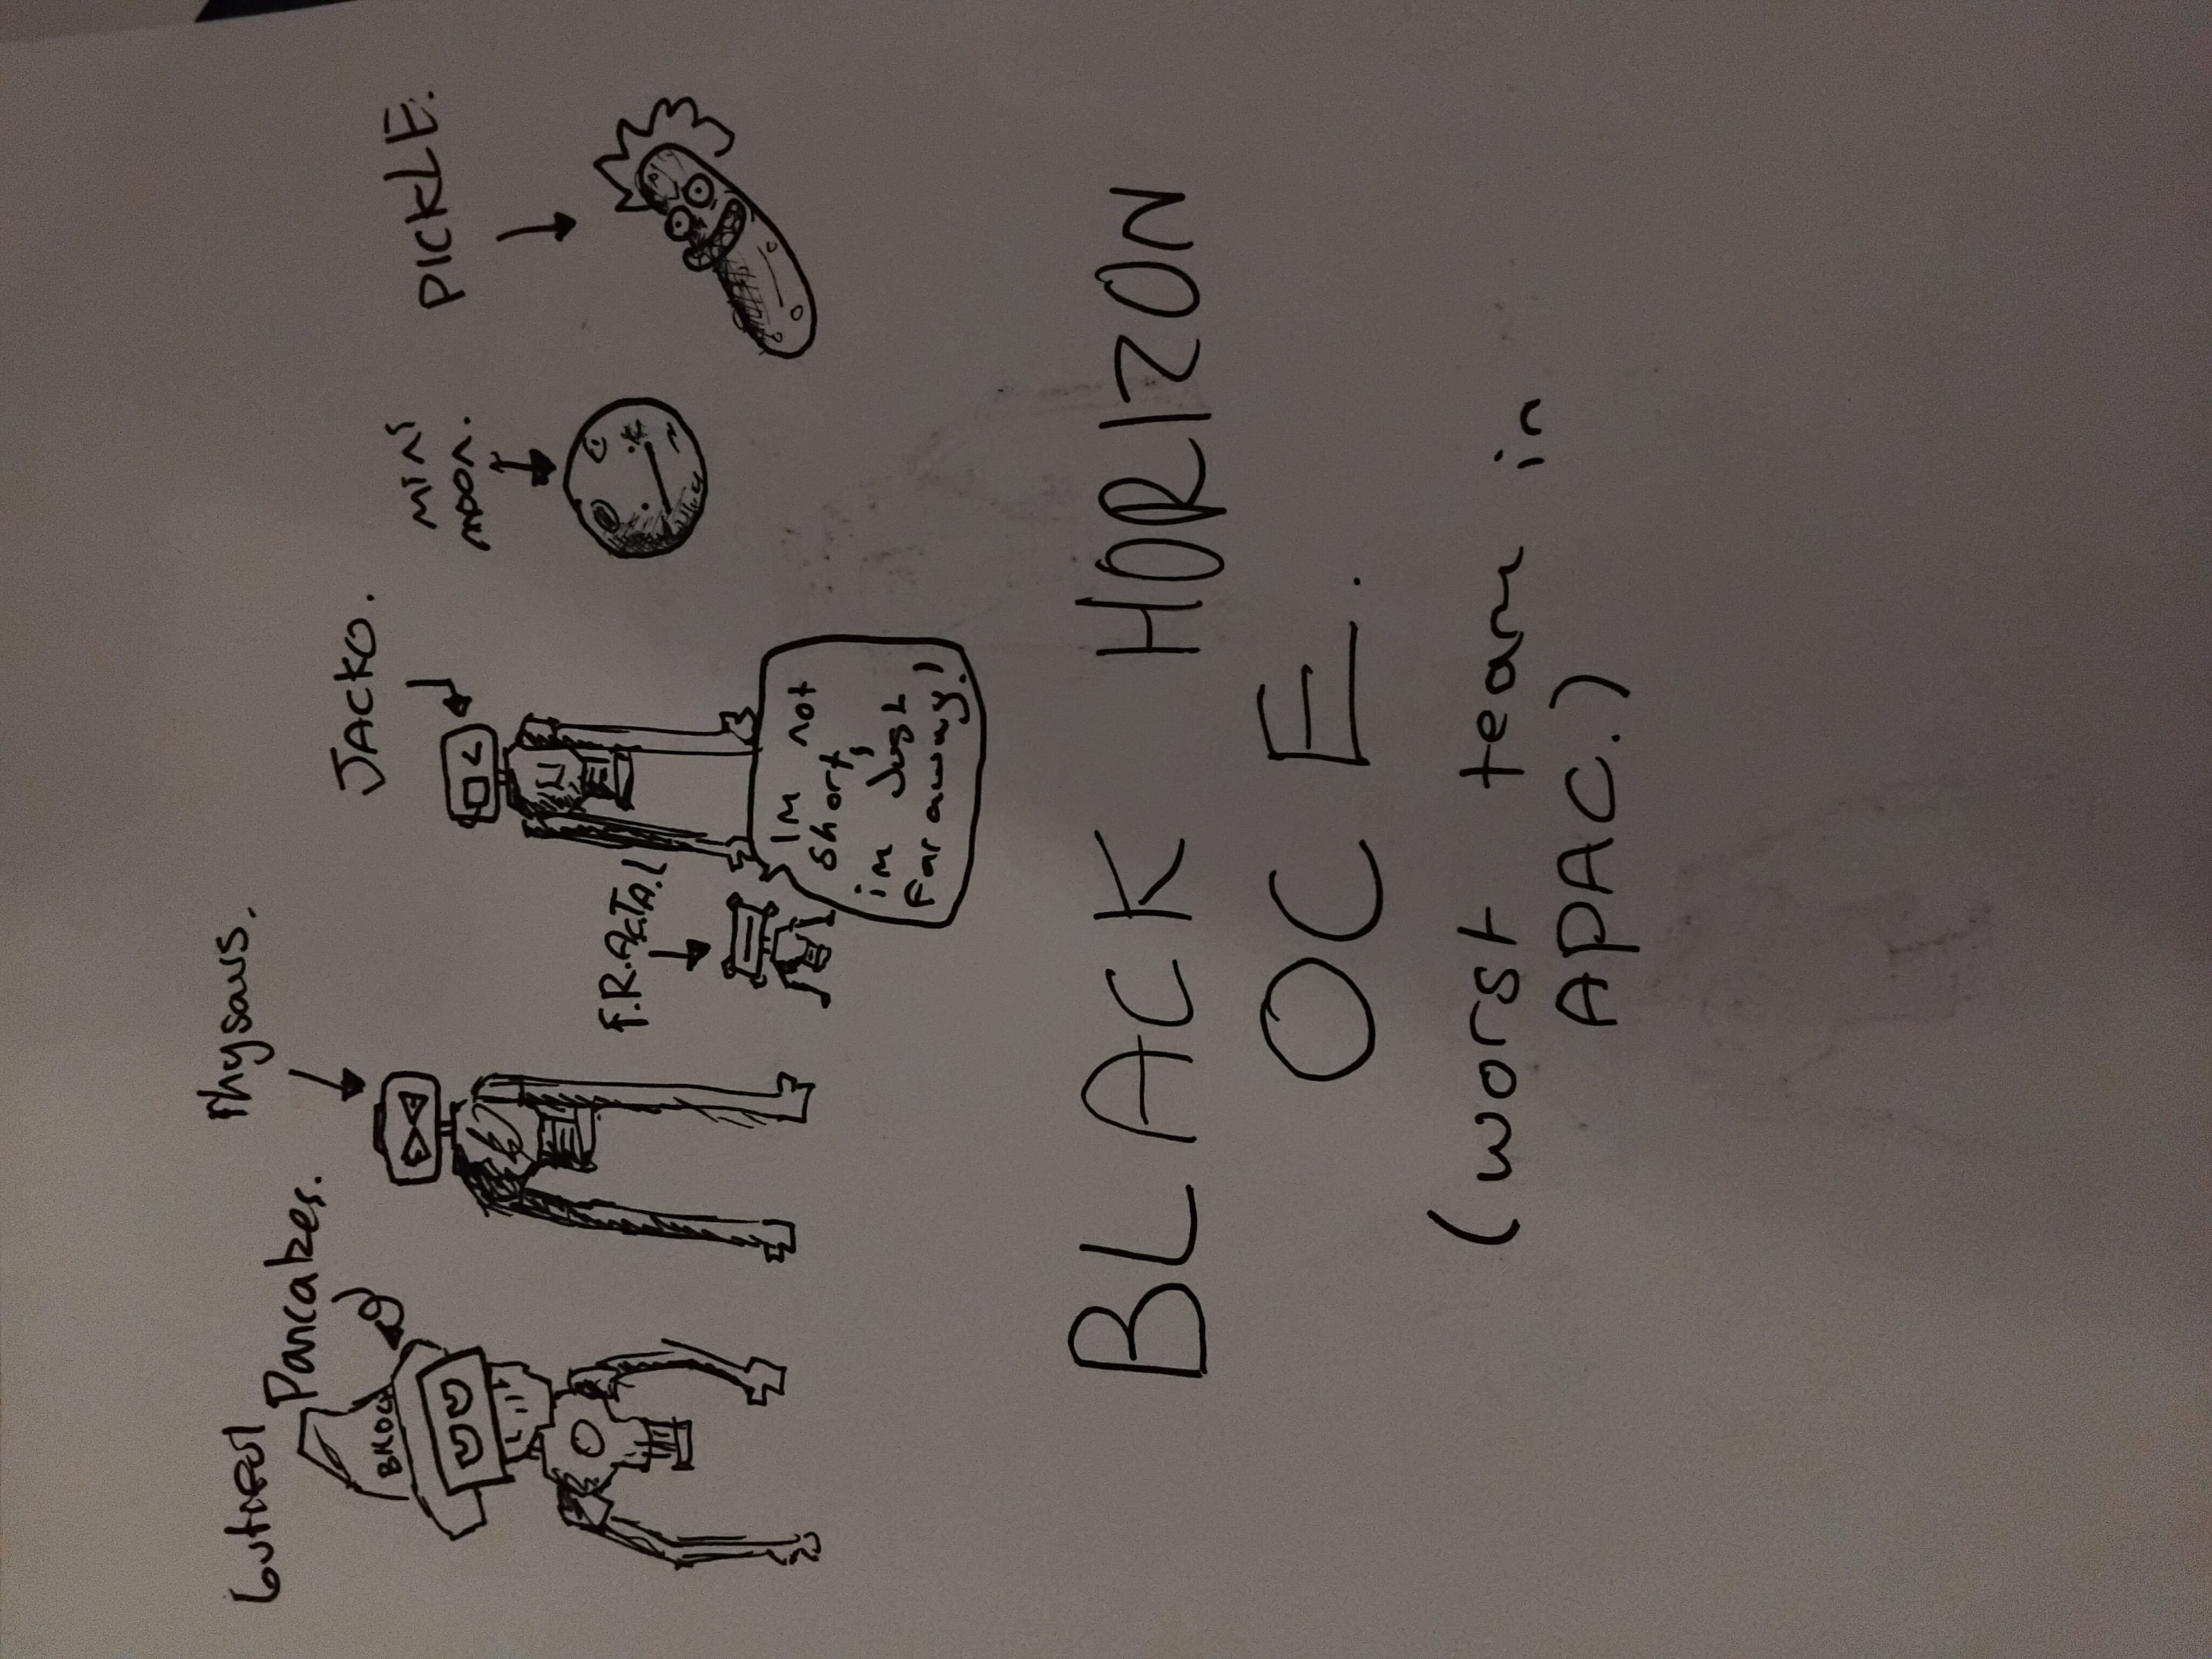 Pancakes.
JACKO.
f.R.ACTA.L
mini
moon.
PICKLE.
Im not
short,
im Just
Far away!
BLACK HORIZON
OCE.
(worst team in
APAC.)